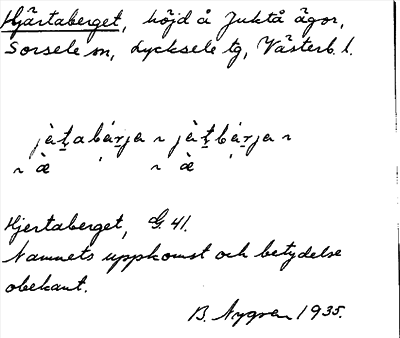 Hjärtaberget, höjd å Juktå ägor,
Sorsele sn, Lycksele tg, Västerb. l.
jàṯabáṟja ~ jàṯbáṟja ~
~ æ̀ ~ æ̀
Hjertaberget, G. 41.
Namnets uppkomst och betydelse
obekant.
B. Nygren 1935.